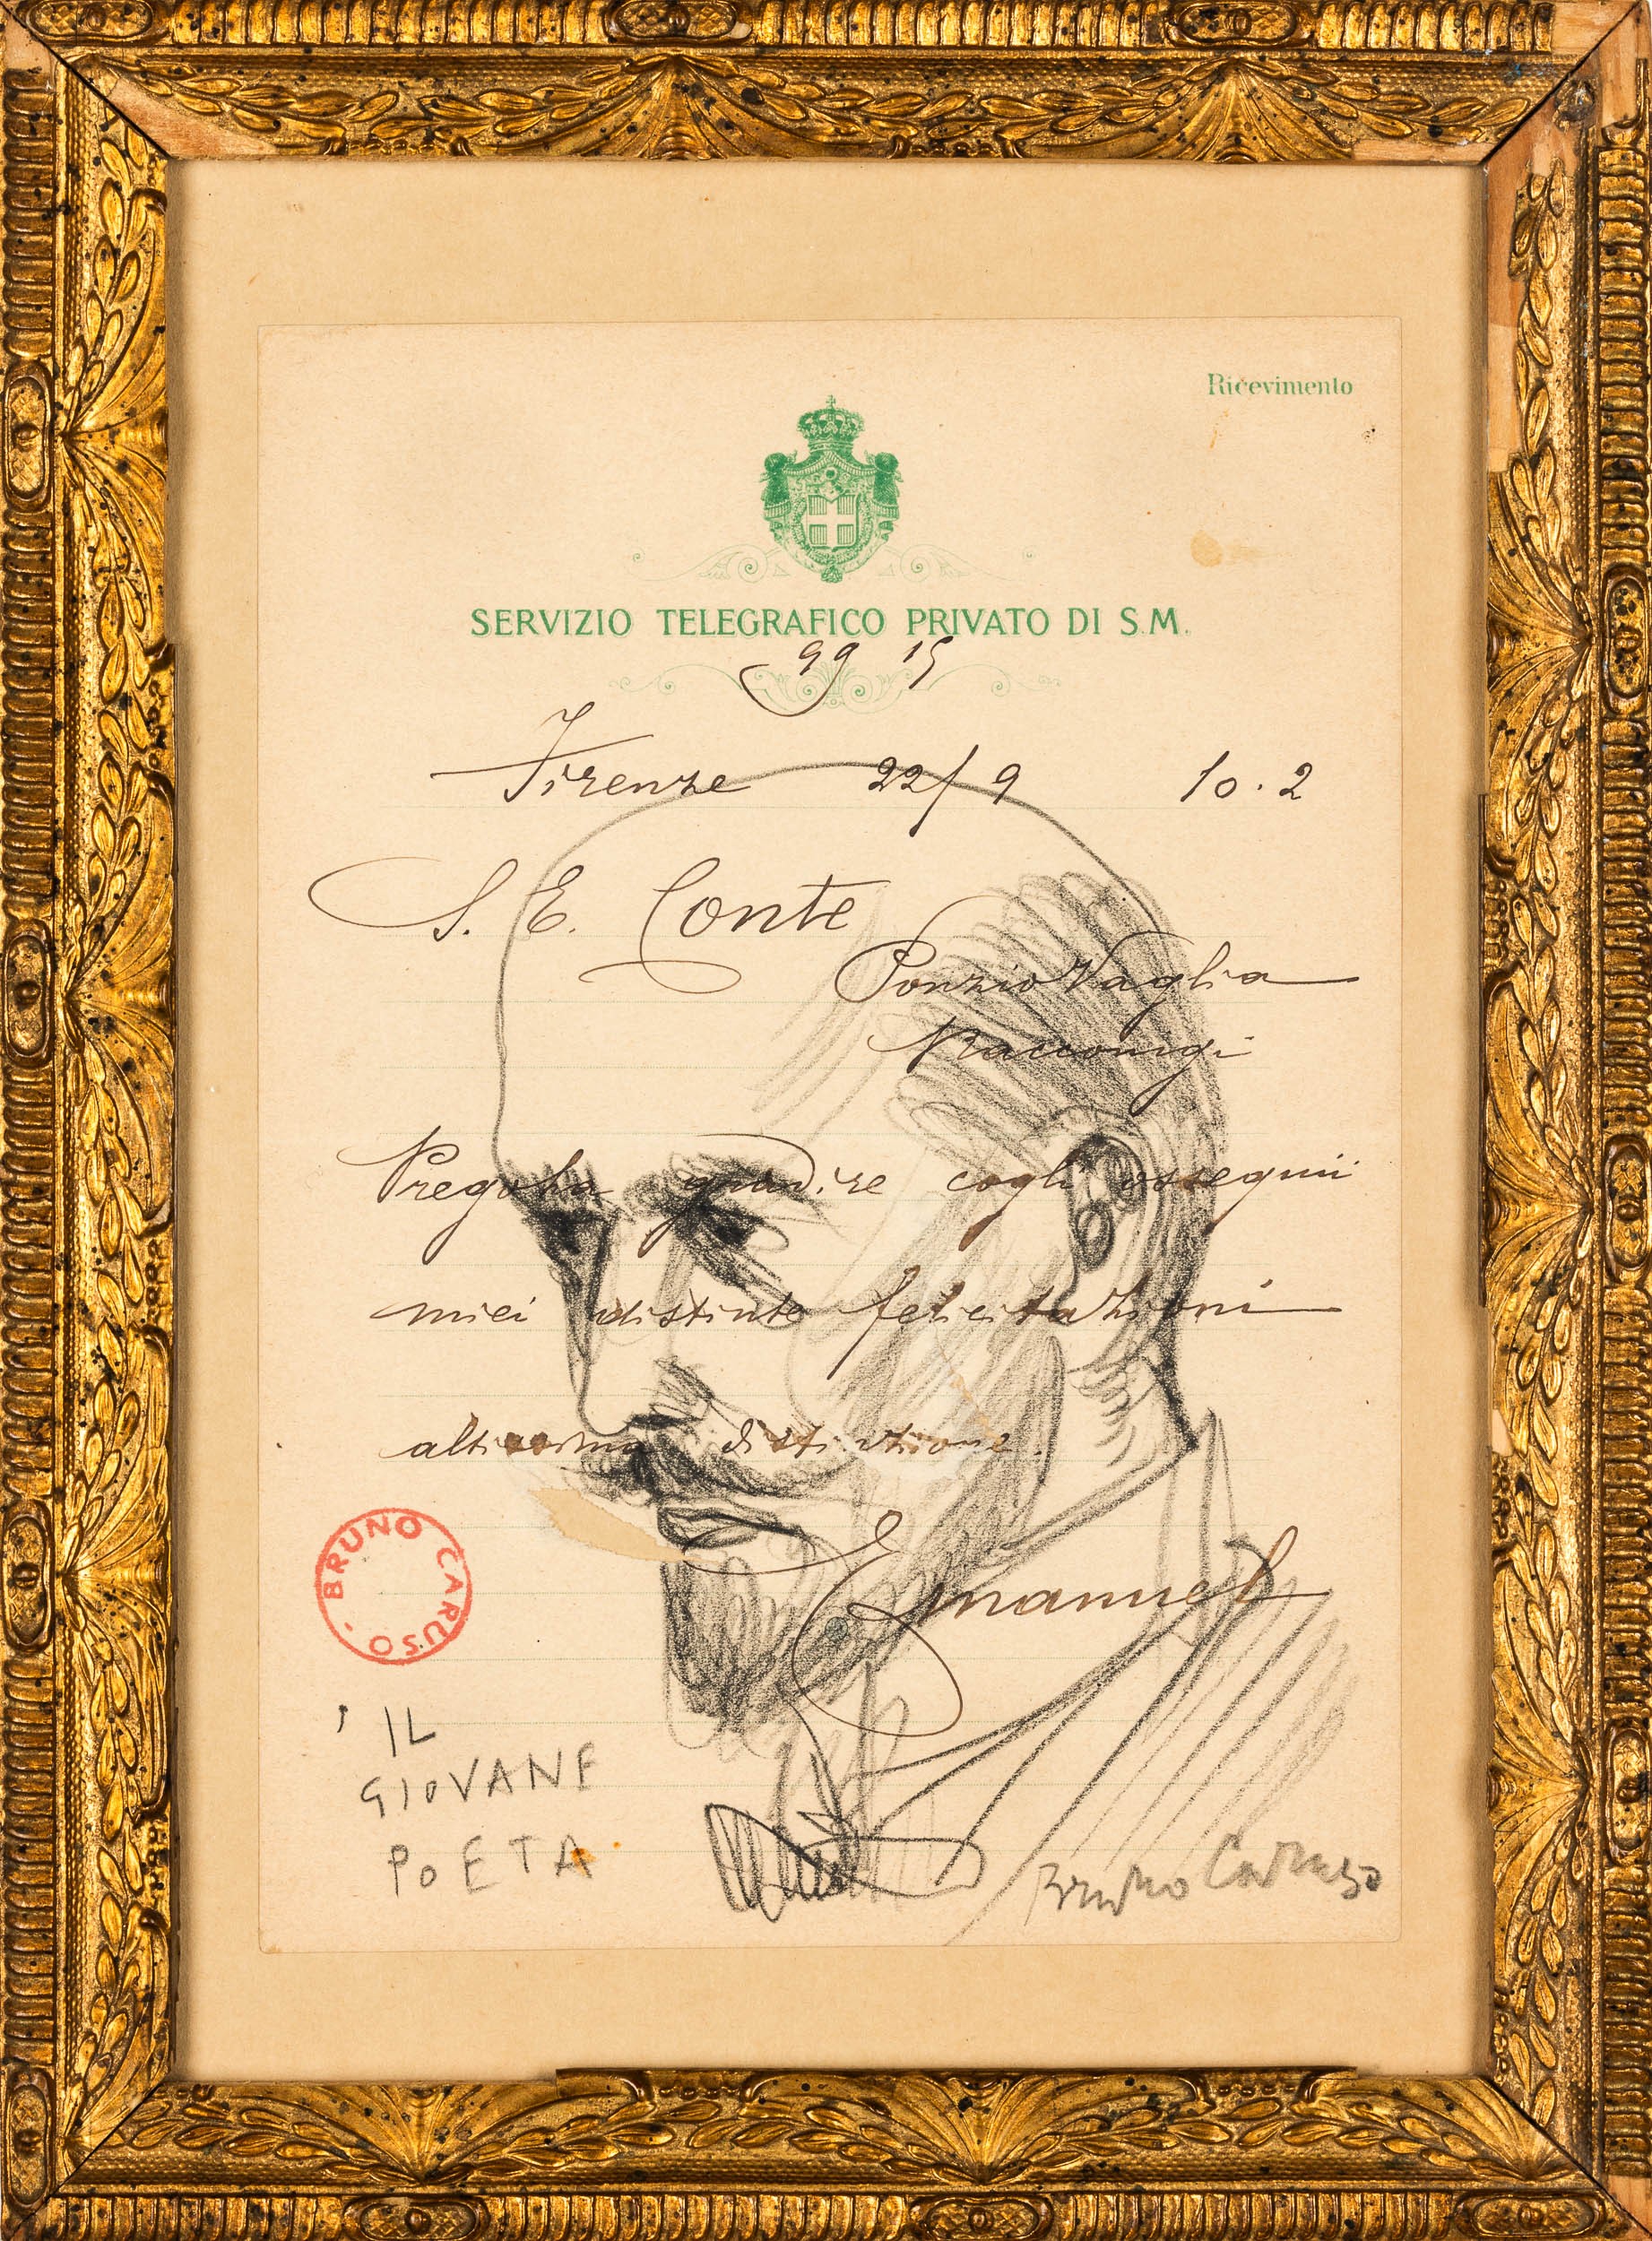 Ricevimento
SERVIZIO TELEGRAFICO PRIVATO DI S.M.
99 15
Firenze 22/9 10.2
S. E. Conte
Ponzio Vaglia
Racconigi
Pregola gradire cogli ossequii
miei distinte felicitazioni
altissima distinzione.
Emanuel
BRUNO CARUSO -
IL
GIOVANE
POETA
Bruno Caruso